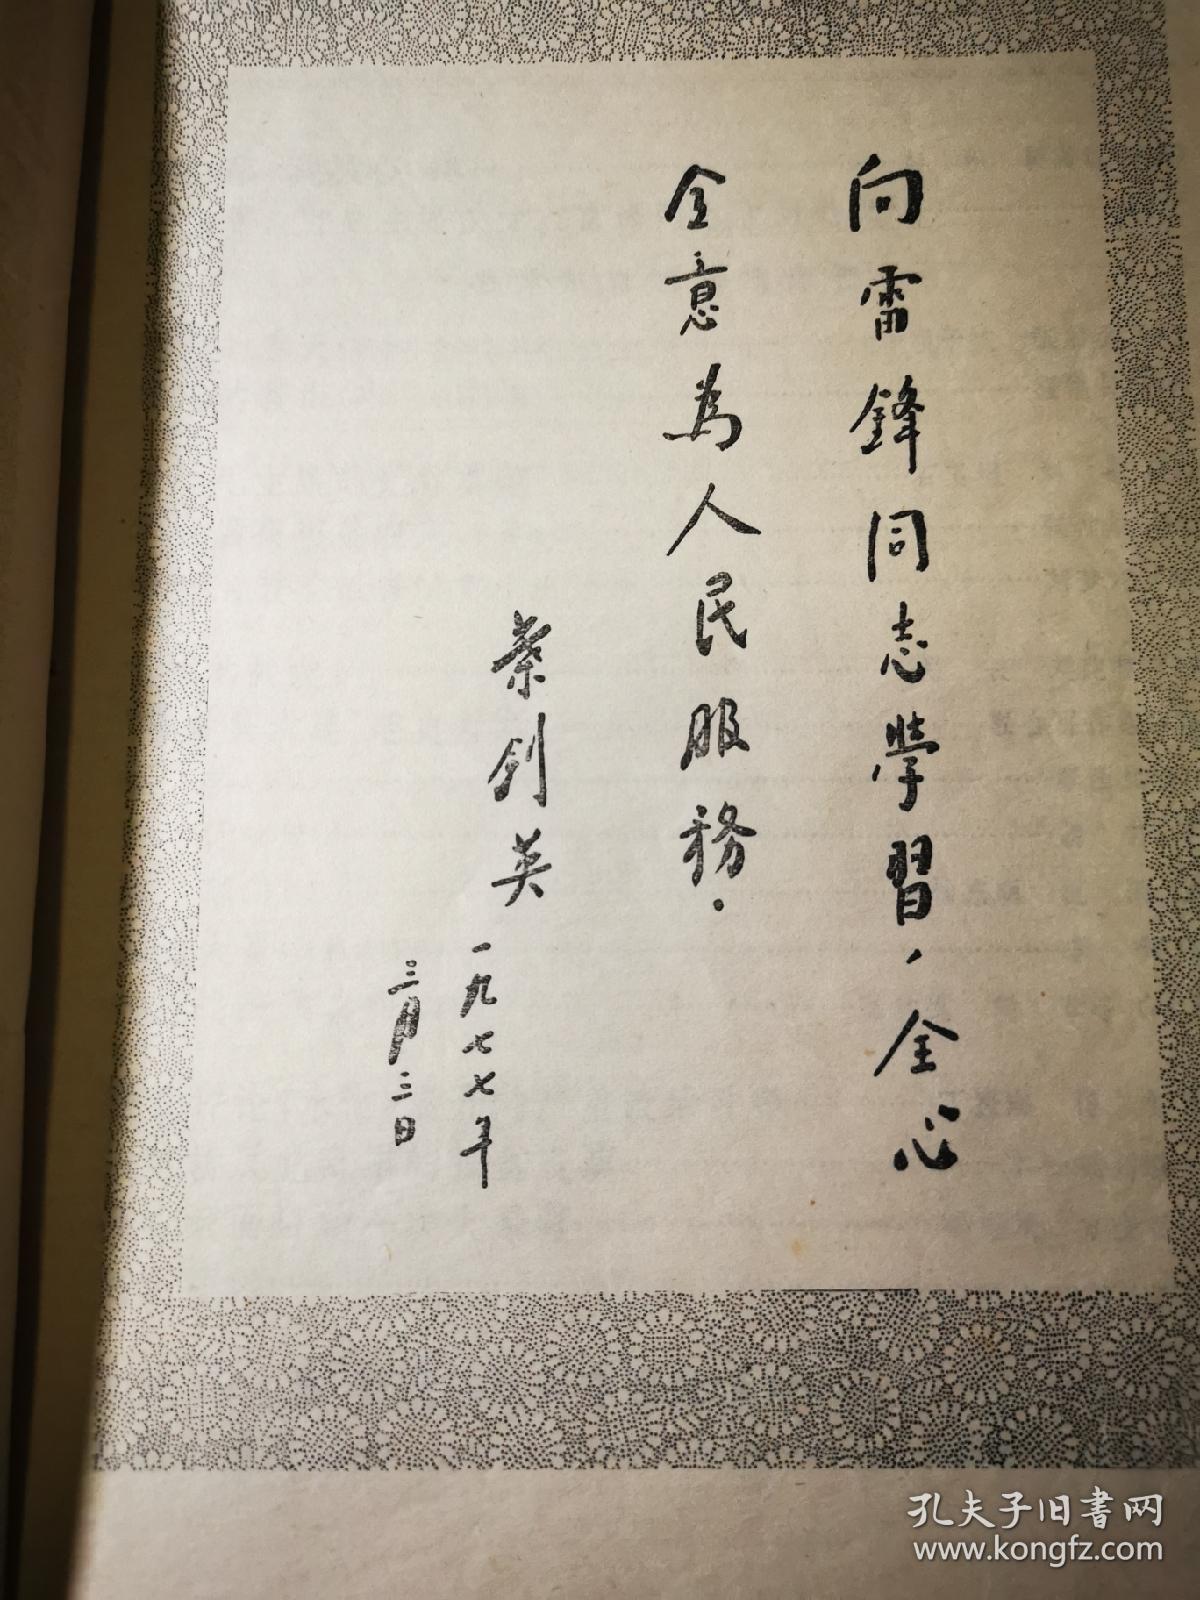 向雷鋒同志學習、全心
全意為人民服務.
葉剑英
一九七七年
三月二日
孔夫子旧書网
www.kongfz.com